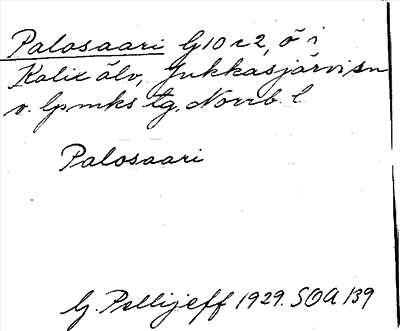 Palosaari G10 c2, ö i
Kalix älv, Jukkasjärvi sn
v. lpmks tg. Norrb. l.
Palosaari
G. Pellijeff 1929. SOA 139